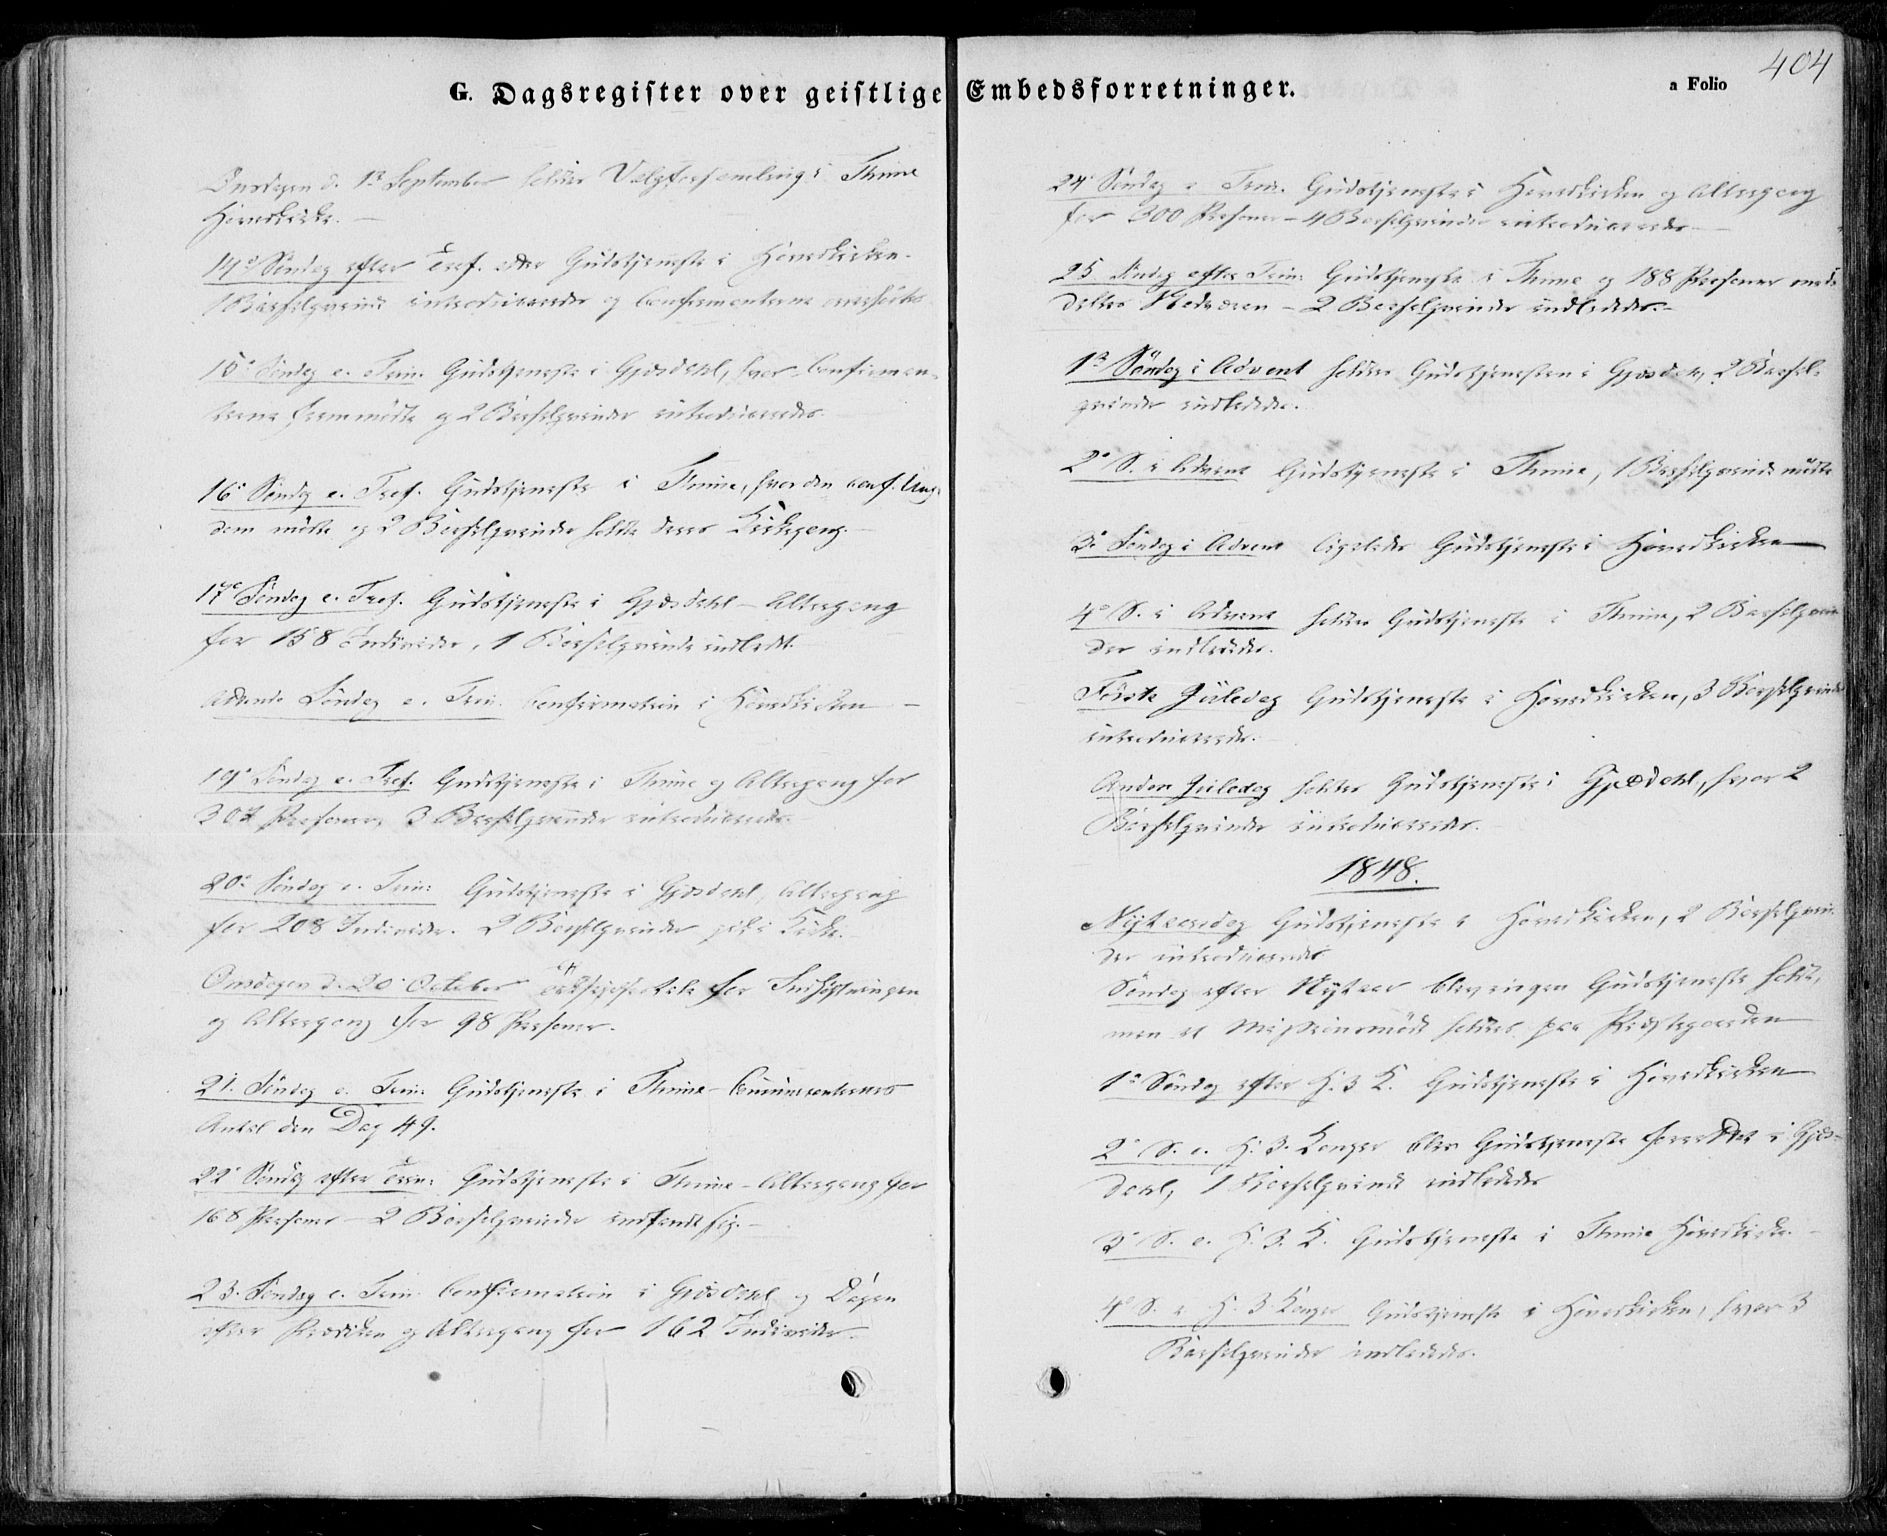 G. Dagsregister over geistlige Embedsforretninger.
a Folio 404
Onsdagen d. 1ste September holdtes Valgforsamling i Thime
Hovedkirke. —
14de Søndag efter Tref. Gudstjeneste i Hovedkirken.
1 Barselqvinde introduceredes og Confirmanterne
15de Søndag e. Trin. Gudstjeneste i Gjæsdahl, hvor Confirman-
terne fremmødte og 2 Barselqvinder introduceredes.
16de Søndag e. Tref. Gudstjeneste i Thime, hvor den conf. Ung-
dom mødte og 2 Barselqvinder holdte deres Kirkegang.
17de Søndag e. Tref. Gudstjeneste i Gjæsdahl – Altergang
for 158 Individer, 1 Barselqvinde indledet.
Attende Søndag e. Trin. Confirmation i Hovedkirken —
19de Søndag e. Tref. Gudstjeneste i Thime og Altergang for
304 Personer, 3 Barselqvinder introduceredes.
20de Søndag e. Trin: Gudstjeneste i Gjæsdahl, Altergang
for 208 Individer. 2 Barselqvinder gik i Kirke.
Onsdagen d. 20de October for Indhøstningen
og Altergang for 98 Personer.
21. Søndag e. Trin: Gudstjeneste i Thime – Communicanternes
Antal den Dag 49.
22de Søndag efter Trin: Gudstjeneste i Thime – Altergang for
168 Personer – 2 Barselqvinder indfandt sig. –
23. Søndag e. Trin. Confirmation i Gjæsdahl og Dagen
efter Prædiken og Altergang for 162 Individer.
24de Søndag e. Trin. Gudstjeneste i Hovedkirken og Altergang
for 300 Personer – 4 Barselqvinder introduceredes –
25 Søndag efter Trin: Gudstjeneste i Thime og 188 Personer med-
deltes Nadveren – 2 Barselqvinder indlededes. –
1ste Søndag i Advent holdtes Gudstjenesten i Gjæsdal, 2 Barsel-
qvinder indlededes.
2den S. i Advent Gudstjeneste i Thime, 1 Barselqvinde mødte
3de Søndag i Advent ligeledes Gudstjeneste i Hovedkirken
4de S. i Advent holdtes Gudstjeneste i Thime, 2 Barselqvin-
der indlededes.
Første Juledag Gudstjeneste i Hovedkirken, 3 Barselqvinder
introduceredes. –
Anden Juledag holdtes Gudstjeneste i Gjæsdahl, hvor 2
Barselqvinder introduceredes. –
1848.
Nytaarsdag Gudstjeneste i Hovedkirken, 2 Barselqvin-
der introduceredes
Søndag efter Nytaar blev ingen Gudstjeneste holdt,
men et Missionsmøde holdtes paa Præstegaarden
1ste Søndag efter H. 3 K. Gudstjeneste i Hovedkirken
2den S. e. H. 3. Konger blev Gudstjeneste forrettet i Gjæs-
dahl, 1 Barselqvinde indlededes
3de S. e. H. 3. K. Gudstjeneste i Thime Hovedkirke. –
4de S. e. H. 3 Konger Gudstjeneste i Hovedkirken, hvor 3
Barselqvinder indlededes.